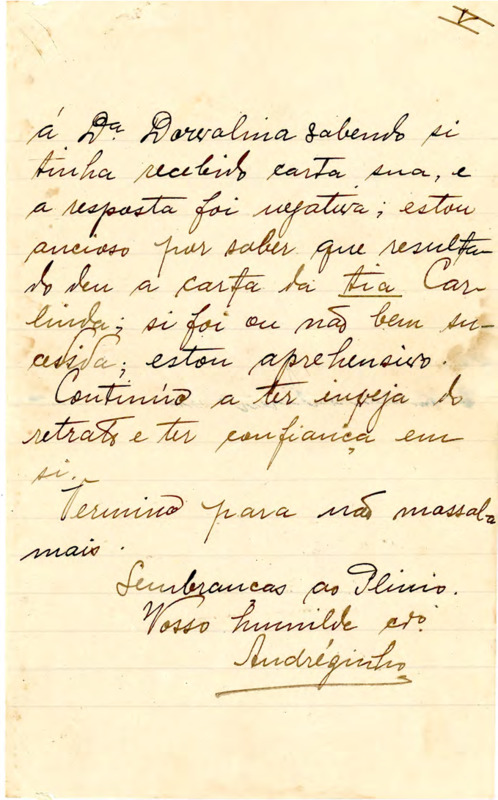 V
á Dª Dorvalina sabendo si
tinha recebido carta sua, e
a resposta foi negativa; estou
ancioso por saber que resulta-
do deu a carta da tia Car-
linda; si foi ou não bem su-
cedida; estou aprehensivo.
Continúo a ter inveja do
retrato e ter confiança em
si.
Termino para não massal-a
mais.
Lembranças ao Plinio.
Vosso humilde cdo
Andréginho